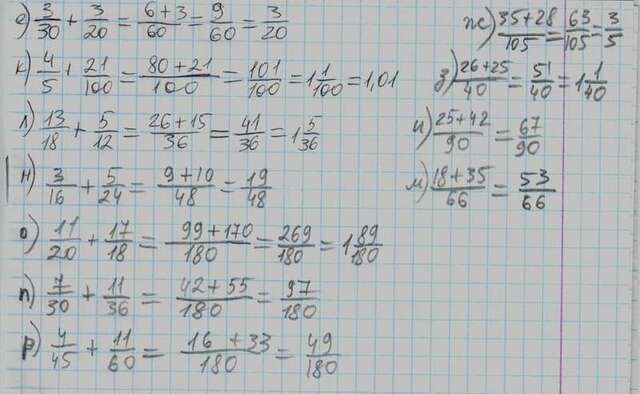 е) 3/30 + 3/20 = 6+3/60 = 9/60 = 3/20
к) 4/5 + 21/100 = 80+21/100 = 101/100 = 1 1/100 = 1,01
л) 13/18 + 5/12 = 26+15/36 = 41/36 = 1 5/36
н) 3/16 + 5/24 = 9+10/48 = 19/48
о) 11/20 + 17/18 = 99+170/180 = 269/180 = 1 89/180
п) 7/30 + 11/36 = 42+55/180 = 97/180
р) 4/45 + 11/60 = 16+33/180 = 49/180
ж) 35+28/105 = 63/105 = 3/5
з) 26+25/40 = 51/40 = 1 1/40
и) 25+42/90 = 67/90
м) 18+35/66 = 53/66